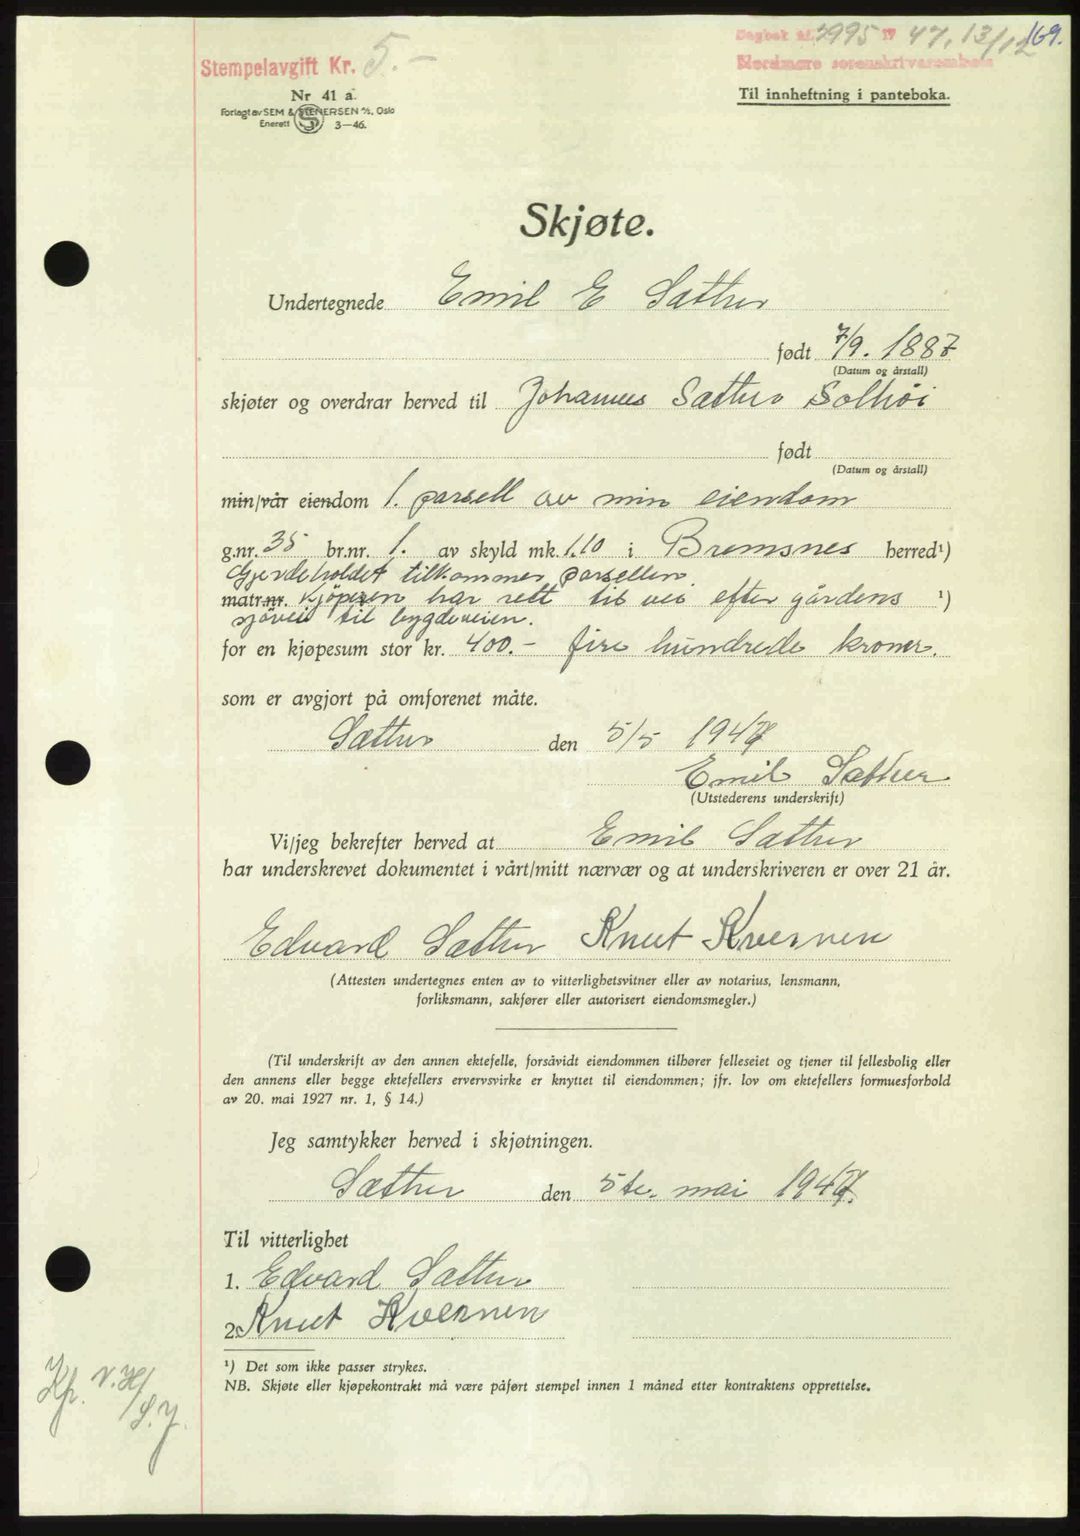 Dagbok nr. 2995 19 47, 13/12 169.
Stempelavgift Kr. 5.-
Nordmøre sorenskriverembete
Nr 41 a.
Til innheftning i panteboka.
Forlagt av SEM & STENERSEN A/S, Oslo
Enerett S 3—46.
Skjøte.
Undertegnede Emil E Sæther
født 7/9. 1887
(Datum og årstall)
skjøter og overdrar herved til Johannes Sæther Solhøi
født
(Datum og årstall)
min/vår eiendom 1. parsell av min eiendom
g.nr. 35 br.nr. 1. av skyld mk. 1.10 i Bremsnes herred¹)
Gjerdeholdet tilkommer parsellen.
matr.nr. Kjøperen har rett til vei efter gårdens ¹)
sjøvei til bygdeveien.
for en kjøpesum stor kr. 400.- fire hundrede kroner.
som er avgjort på omforenet måte.
Sæther den 5/5 1947
Emil Sæther
(Utstederens underskrift)
Vi/jeg bekrefter herved at Emil Sæther
har underskrevet dokumentet i vårt/mitt nærvær og at underskriveren er over 21 år.
Edvard Sæther Knut Kvernen
(Attesten undertegnes enten av to vitterlighetsvitner eller av notarius, lensmann,
forliksmann, sakfører eller autorisert eiendomsmegler.)
(Til underskrift av den annen ektefelle, forsåvidt eiendommen tilhører felleseiet og tjener til fellesbolig eller
den annens eller begge ektefellers ervervsvirke er knyttet til eiendommen; jfr. lov om ektefellers formuesforhold
av 20. mai 1927 nr. 1, § 14.)
Jeg samtykker herved i skjøtningen.
Sæther den 5te. mai 1947.
Til vitterlighet
1. Edvard Sæther
2. Knut Kvernen
¹) Det som ikke passer strykes.
NB. Skjøte eller kjøpekontrakt må være påført stempel innen 1 måned etter kontraktens opprettelse.
Kp. v. H/
S.J.